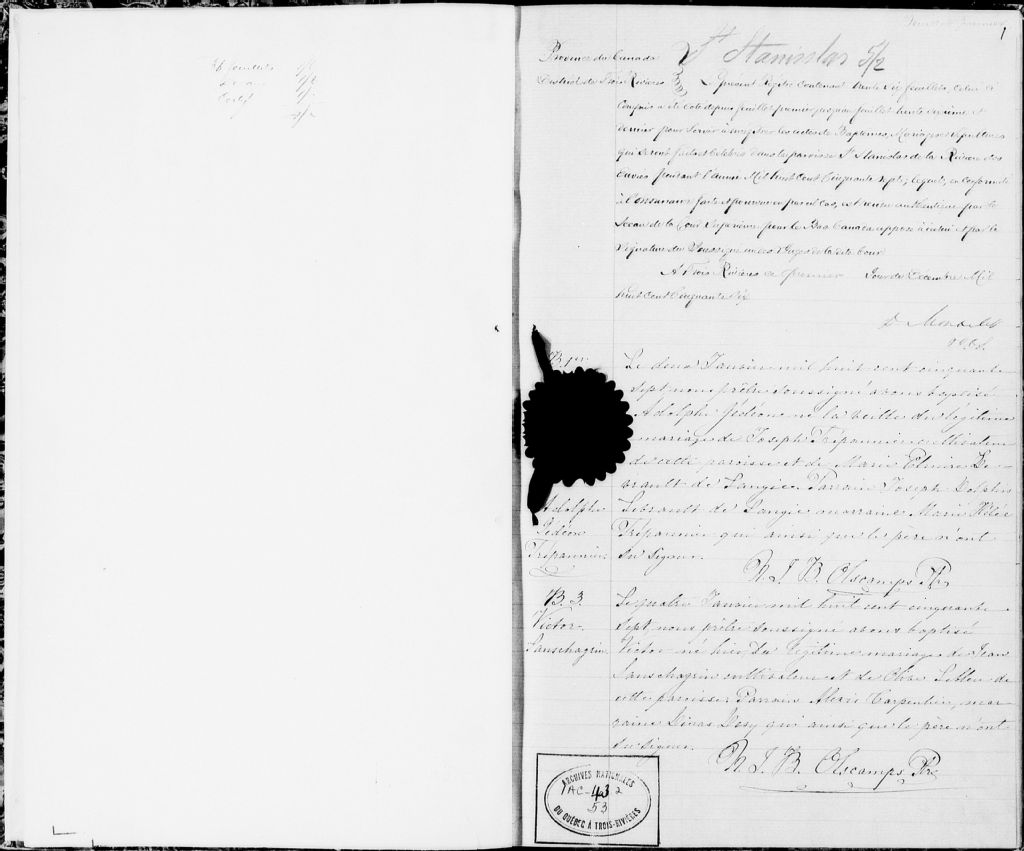 1
St Stanislas 5/2
Province du Canada
District de Trois Rivières
Le présent Registre contenant trente six feuillets, celui ci
compris a été coté depuis feuillet premier jusqu'au feuillet trente sixième et
dernier pour servir à enregistrer les actes de Baptêmes, Mariages et sépultures
qui seront faits et célébrés dans la paroisse St Stanislas de la Rivière des
Envies pendant l'année Mil huit cent cinquante sept; lequel, en conformité
à l'ordonnance faite et pourvue en pareil cas, est rendu authentique par le
Sceau de la Cour Supérieure pour le Bas Canada apposé à icelui et par la
Signature du Soussigné un des Juges de la dite Cour
A Trois Rivières ce premier Jour de Décembre Mil
huit cent cinquante six
D. Mondelet
B. 1er
Le deux Janvier mil huit cent cinquante
sept, nous prêtre soussigné avons baptisé
Adolphe Gédéon né la veille du légitime
mariage de Joseph Trépannier cultivateur
de cette paroisse et de Marie Elmire Le-
brault de Langie. Parrain Joseph Dolphis
Adolphe
Lebrault de Langie marraine Marie
Gédéon
Trépannier qui ainsi que le père n'ont
Trépannier
su signer.
N. J. B. Olscamps Ptr
B. 3.
Le quatre Janvier mil huit cent cinquante
Victor
sept, nous prêtre soussigné avons baptisé
Lanschagrin
Victor né hier, du légitime mariage de Jean
Lanschagrin cultivateur et de Olive Lebleu de
cette paroisse. Parrain Alexis Carpentier, mar
raine qui ainsi que le père n'ont
su signer.
N. J. B. Olscamps Ptr
ARCHIVES NATIONALES
43
53
DU QUÉBEC À TROIS-RIVIÈRES